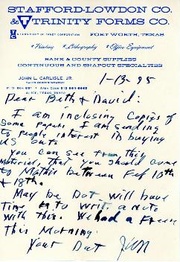 STAFFORD-LOWDON CO.
& TRINITY FORMS CO.
FORT WORTH, TEXAS
Printing • Lithography • Office Equipment
BANK & COUNTY SUPPLIES
CONTINUOUS AND SNAPOUT SPECIALTIES
JOHN L. CARLISLE, JR.
1-13-85
Dear Beth & David:
I am inclosing Copies of
some papers I am sending
to people interest in buying
US Oats
You can see from this
Material, that you should come
to Mother between Feb 10th
& 18th.
May be Dot will have
time to write a note
with this. We had a Freeze
this Morning.
Your Dad